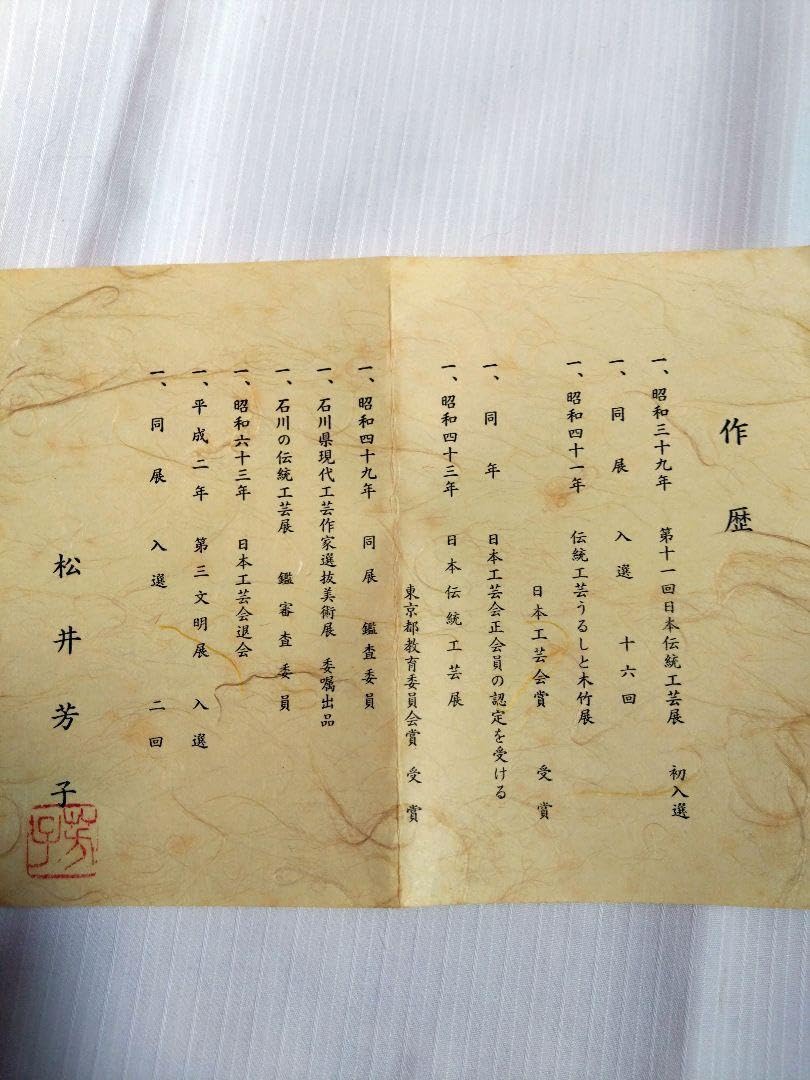 作歴
一、昭和三十九年 第十一回日本伝統工芸展 初入選
一、同展 入選 十六回
一、昭和四十一年 伝統工芸うるしと木竹展
日本工芸会賞 受賞
一、同年 日本工芸会正会員の認定を受ける
一、昭和四十三年 日本伝統工芸展
東京都教育委員会賞 受賞
一、昭和四十九年 同展 鑑査委員
一、石川県現代工芸作家選抜美術展 委嘱出品
一、石川の伝統工芸展 鑑審査委員
一、昭和六十三年 日本工芸会退会
一、平成二年 第三文明展 入選
一、同展 入選 二回
松井芳子
芳子